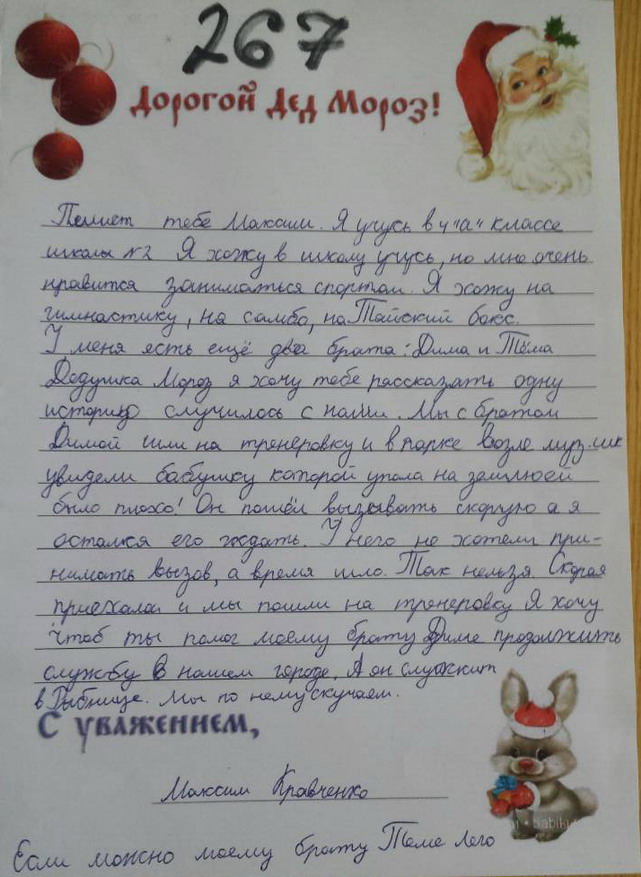 267
Дорогой Дед Мороз!
Пишет тебе Максим. Я учусь в 4 "а" классе
школы №2 Я хожу в школу учусь, но мне очень
нравится заниматься спортом. Я хожу на
гимнастику, на самбо, на Тайский бокс.
У меня есть ещё два брата: Дима и Тёма
Дедушка Мороз я хочу тебе рассказать одну
историю случилось с нами. Мы с братом
Димой шли на тренеровку и в парке возле муз.шк
увидели бабушку которой упала на землю ей
было плохо! Он пошёл вызывать скорую а я
остался его ждать. У него не хотели при-
нимать вызов, а время шло. Так нельзя. Скорая
приехала и мы пошли на тренеровку Я хочу
чтоб ты помог моему брату Диме продолжить
службу в нашем городе. А он служит
в Рыбнице. Мы по нему скучаем.
С уважением,
Максим Кравченко
Если можно моему брату Тёме Лего